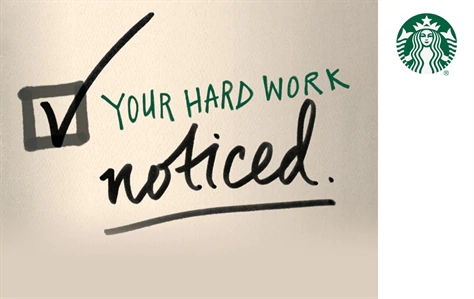 YOUR HARD WORK
noticed.